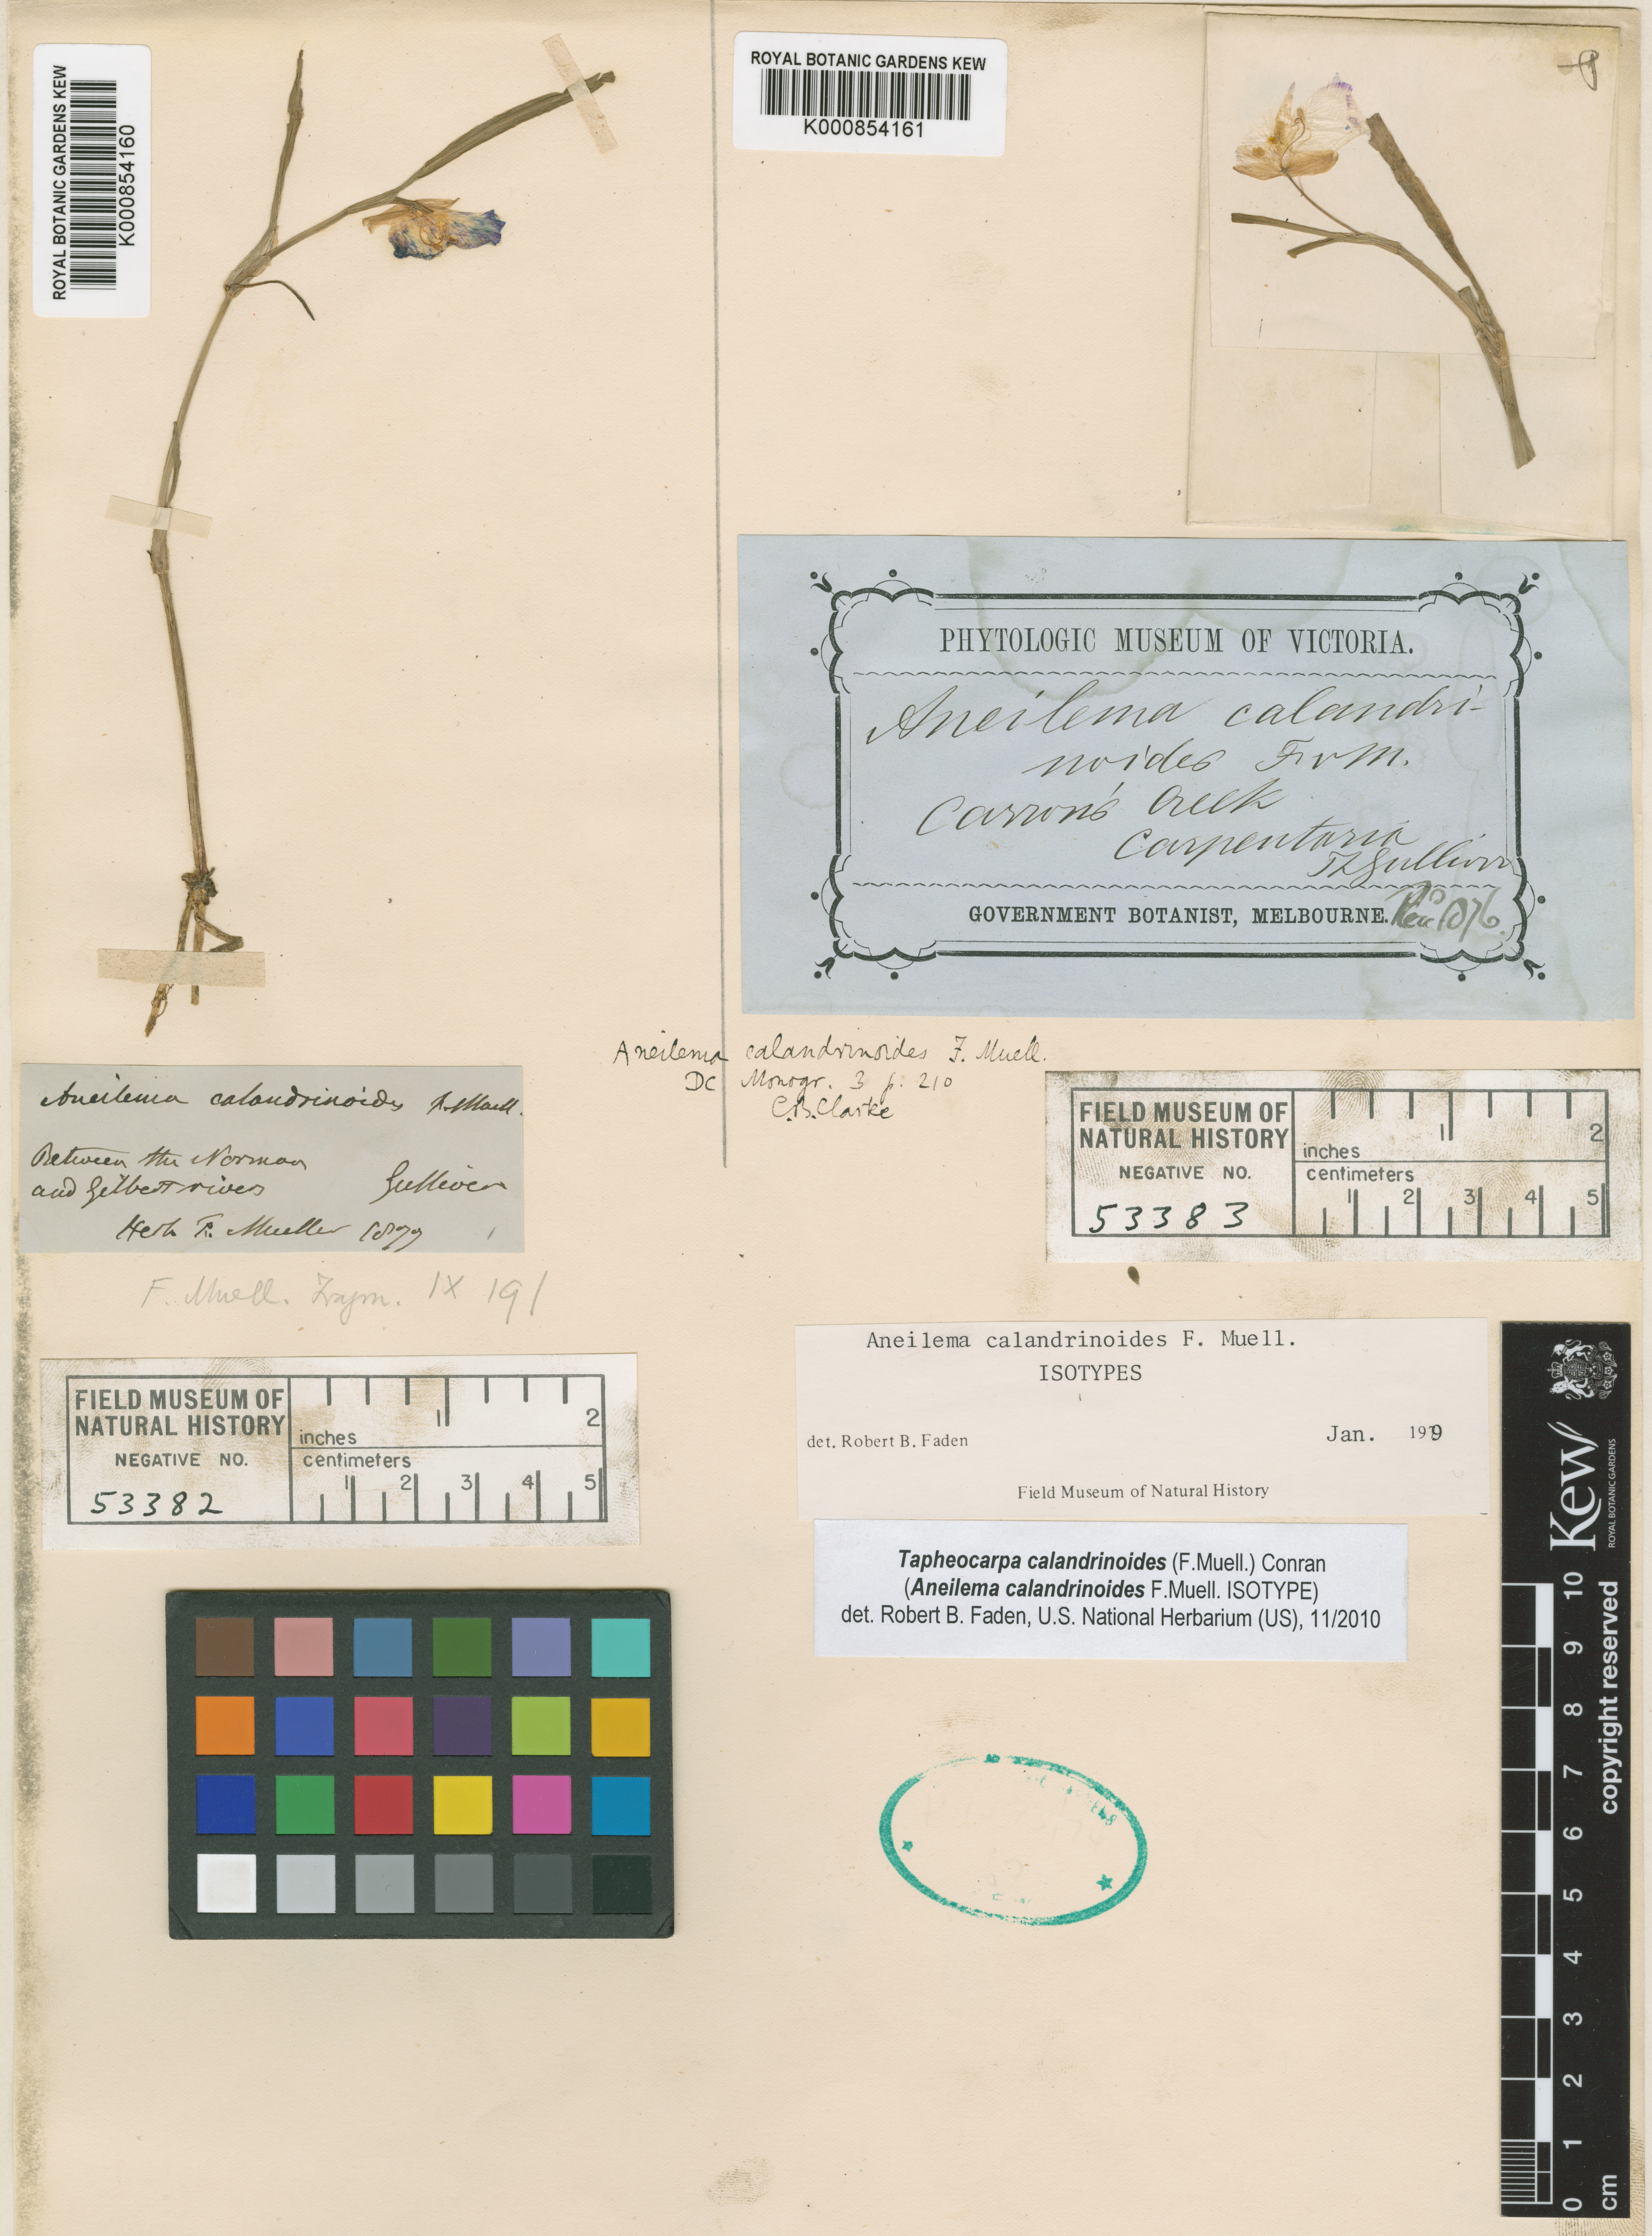 ROYAL BOTANIC GARDENS KEW
K000854160
ROYAL BOTANIC GARDENS KEW
K000854161
PHYTOLOGIC MUSEUM OF VICTORIA.
Aneilema calandri-
noides FvM.
Carron's Creek
Carpentaria
Gulliver
GOVERNMENT BOTANIST, MELBOURNE.
1876.
Aneilema calandrinoides F. Muell.
DC Monogr. 3 p. 210
C.B.Clarke
Aneilema calandrinoides F. Muell.
Between the Norman
and Gilbert rivers Gulliver
Herb F. Mueller 1877
F. Muell. Fragm. IX 191
FIELD MUSEUM OF
NATURAL HISTORY
NEGATIVE NO.
53383
inches
centimeters
1 2
1 2 3 4 5
FIELD MUSEUM OF
NATURAL HISTORY
NEGATIVE NO.
53382
inches
centimeters
1 2
1 2 3 4 5
Aneilema calandrinoides F. Muell.
ISOTYPES
det. Robert B. Faden Jan. 1979
Field Museum of Natural History
Tapheocarpa calandrinoides (F.Muell.) Conran
(Aneilema calandrinoides F.Muell. ISOTYPE)
det. Robert B. Faden, U.S. National Herbarium (US), 11/2010
Kew
ROYAL BOTANIC GARDENS
copyright reserved
0 1 2 3 4 5 6 7 8 9 10
cm